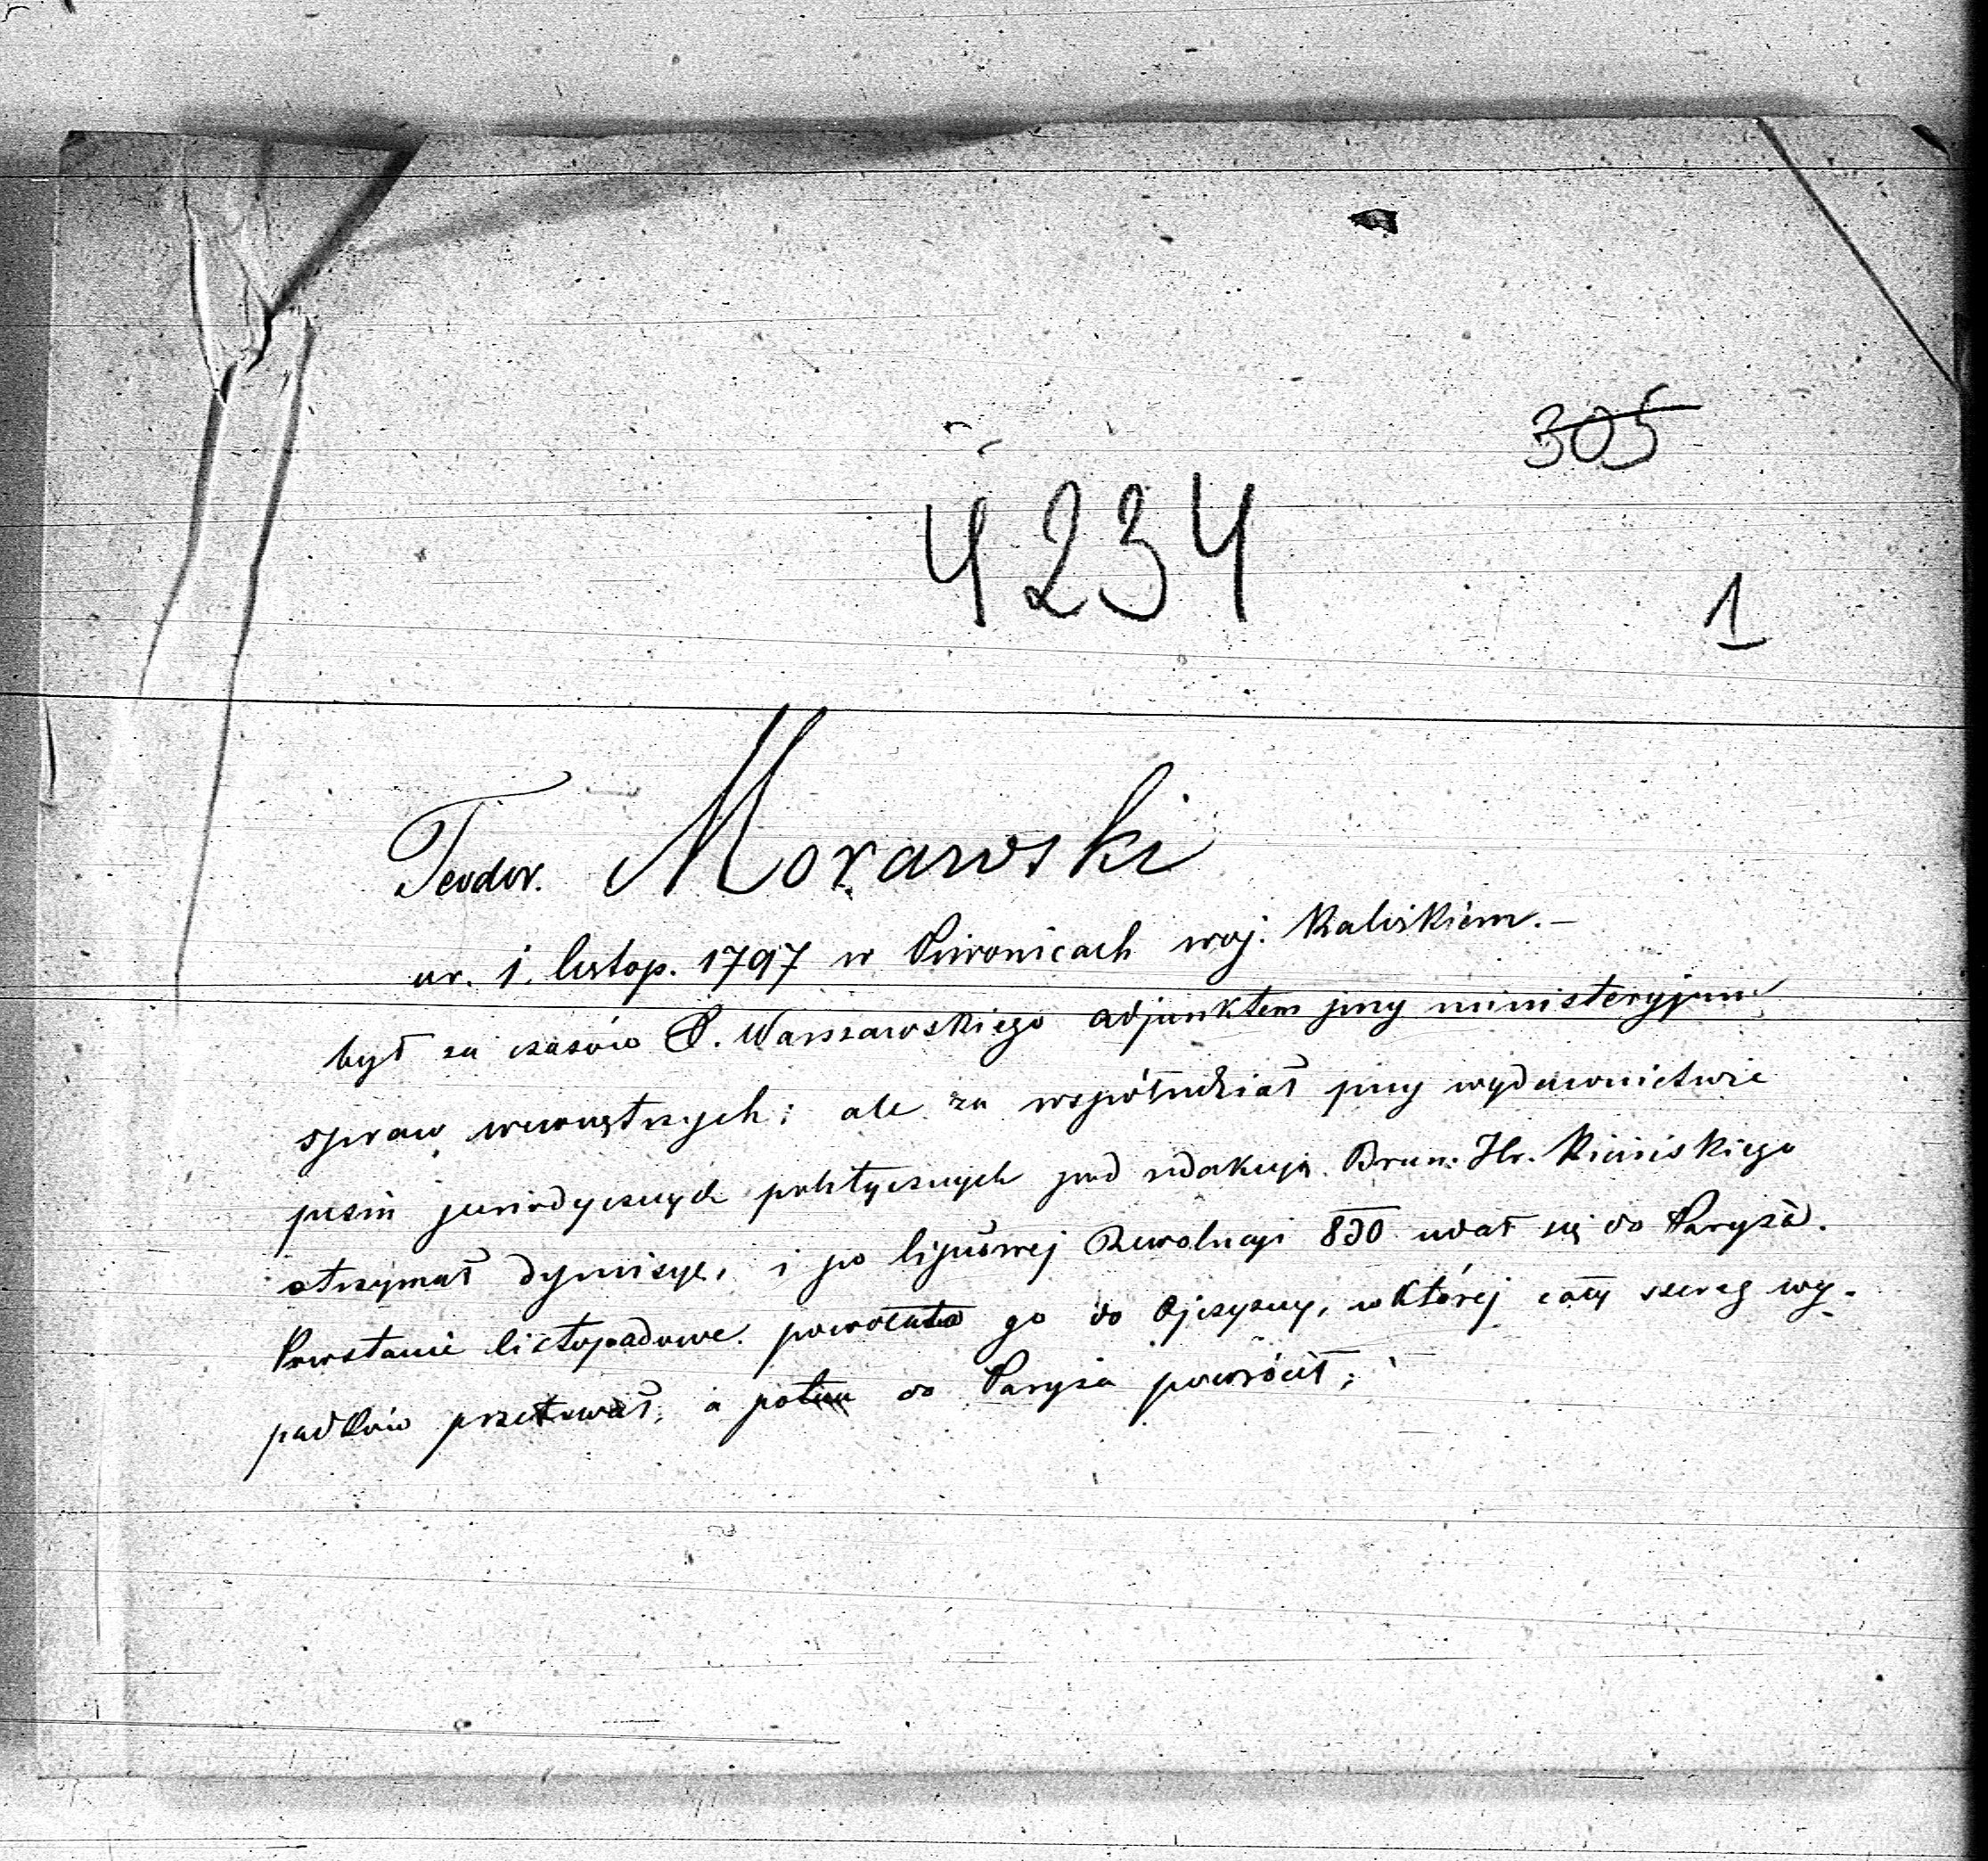 305
4234
1
Teodor. Morawski
ur. 1. listop. 1797 w woj. Kaliskiem. –
był za czasów X. Warszawskiego adjunktem przy ministeryjum
spraw wewnętrznych; ale za współudział przy wydawnictwie
pism peryodycznych politycznych pod redakcyą Brun. Hr. Kicińskiego
otrzymał dymisyę, i po lipcowej Rewolucyi 830 udał się do Paryża.
Powstanie listopadowe powołało go do Ojczyzny, w której cały szereg wy-
padków przetrwał, a potem do Paryża powrócił;